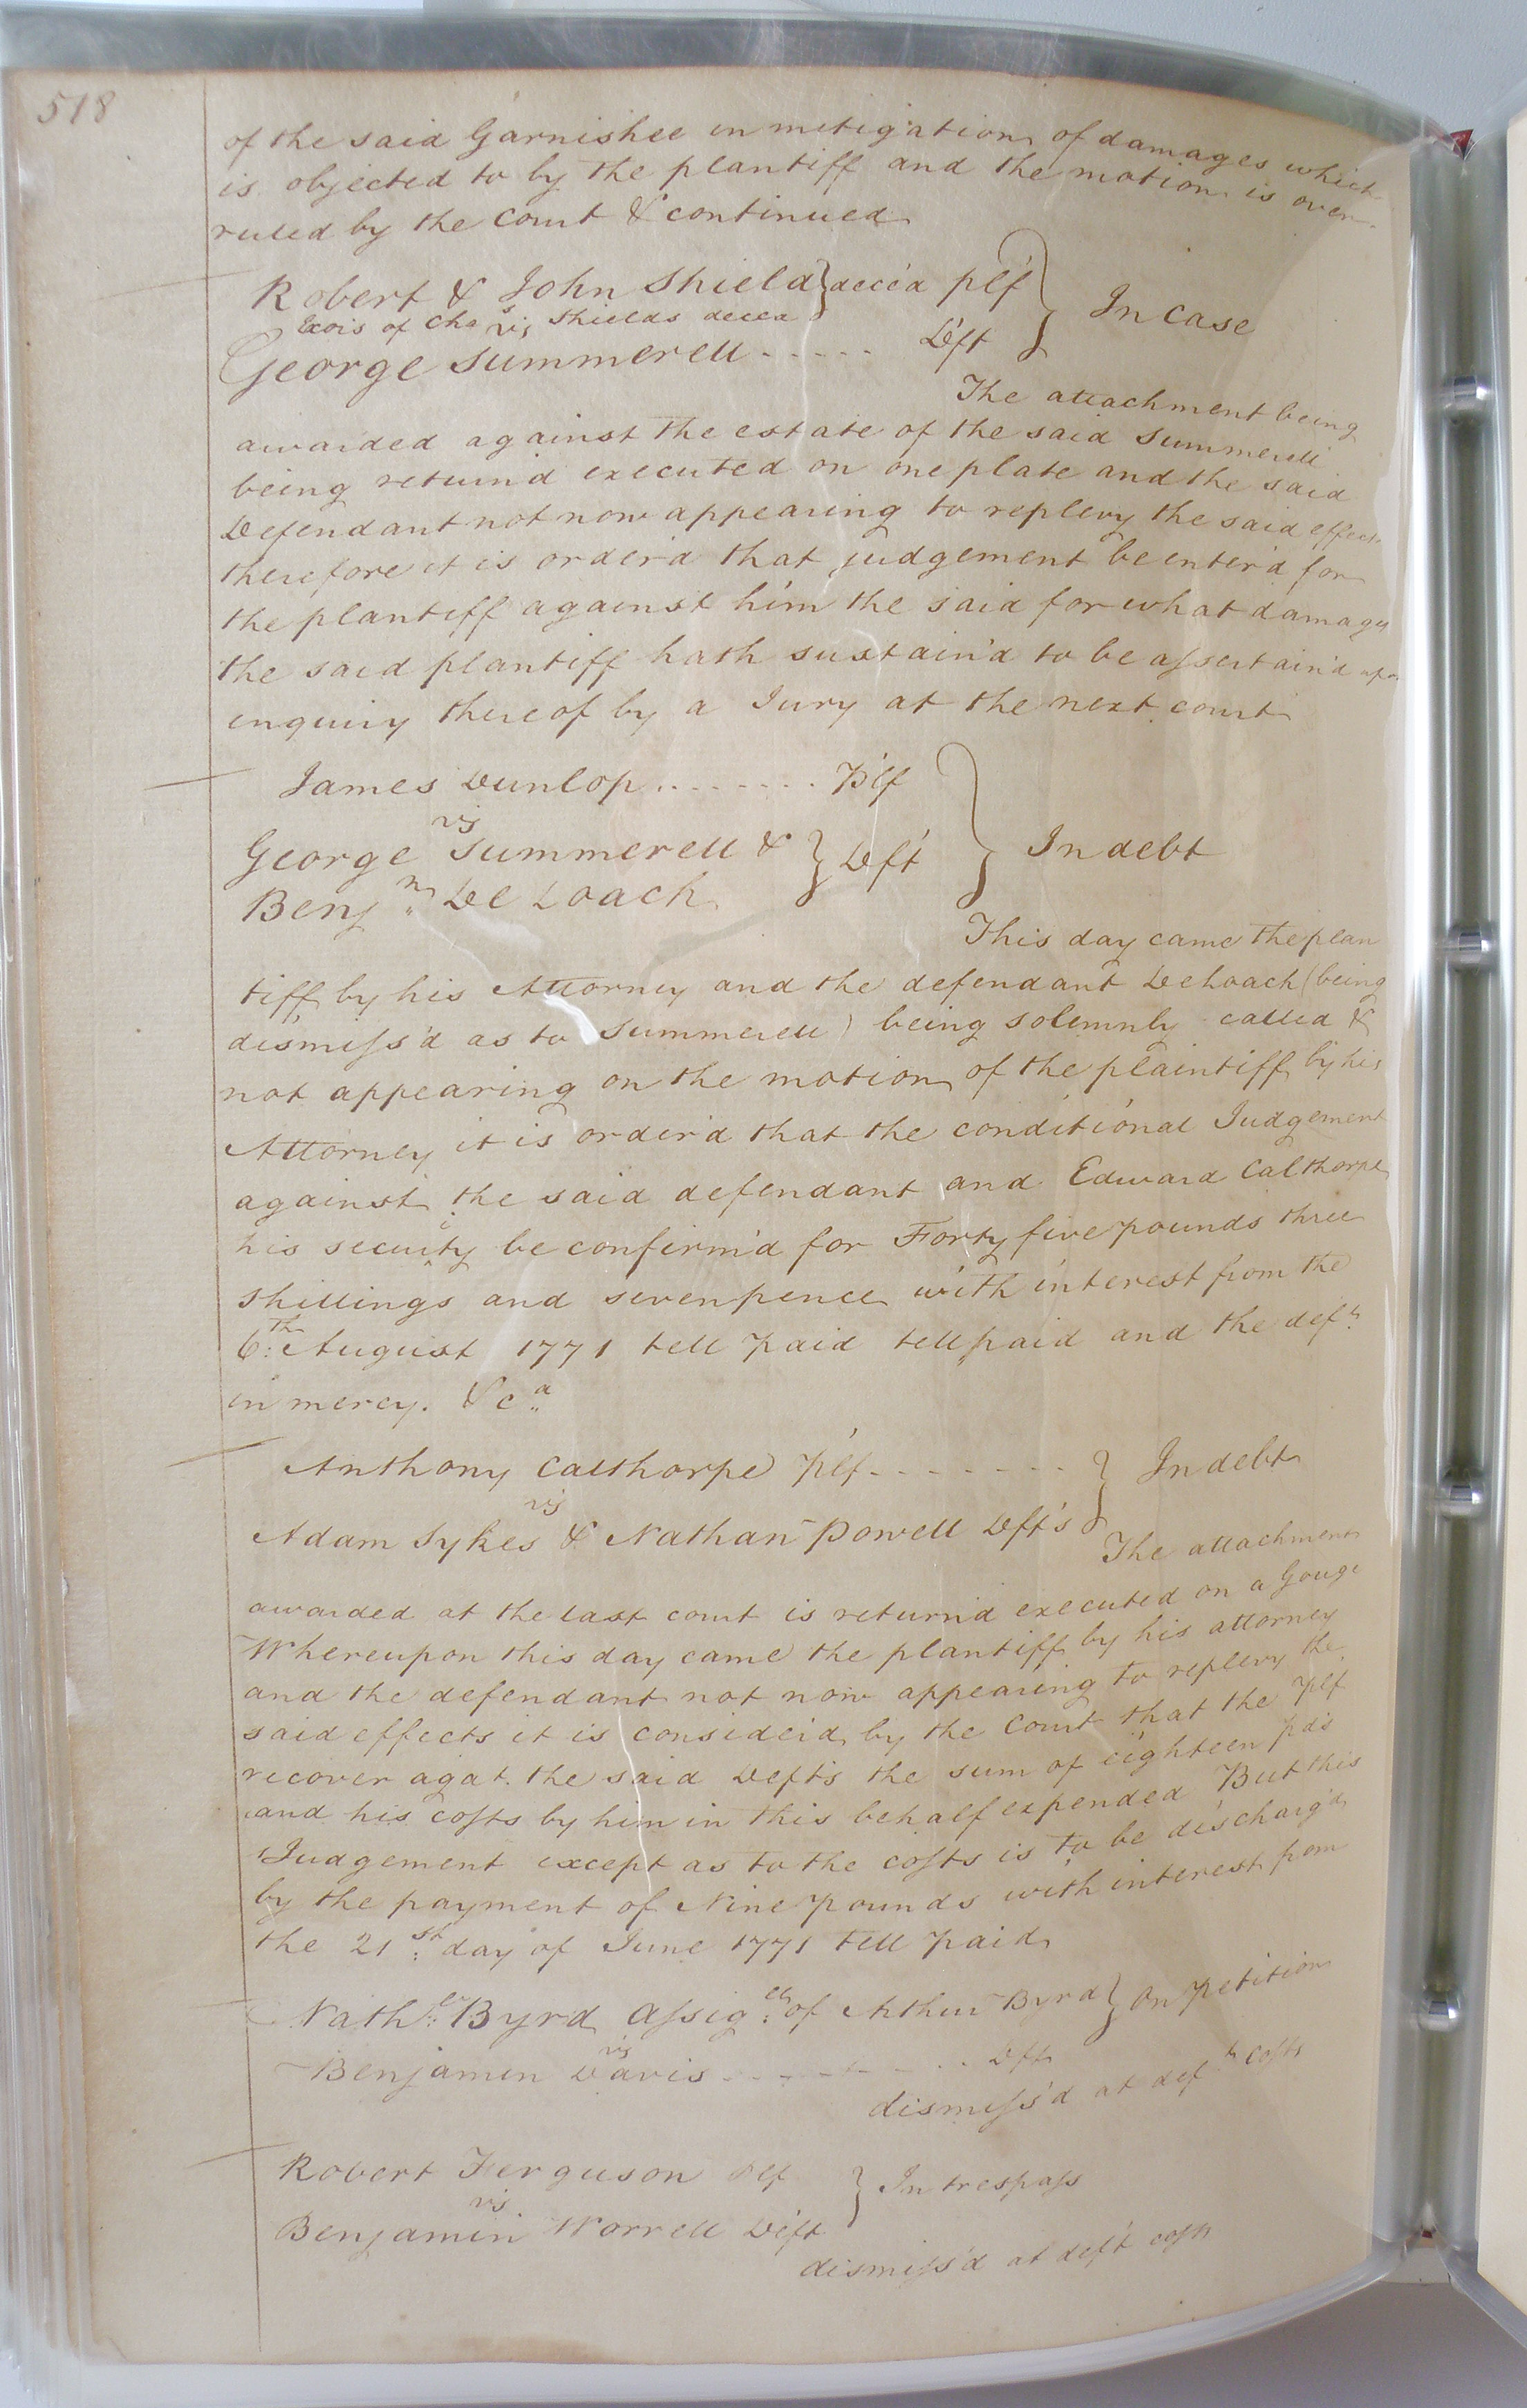 518
of the said Garnishee in mitigation of damages which
is objected to by the plantiff and the motion is over
ruled by the Court & continued
Robert & John Shield } dece'd plf } In Case
Exois of Chas Shields deced
vs
George Summerell ..... Deft
The attachment being
awarded against the estate of the said Summerell
being return'd executed on one plate and the said
Defendant not now appearing to replevy the said effects
therefore it is order'd that judgement be enter'd for
the plantiff against him the said for what damages
the said plantiff hath sustain'd to be assertain'd upon
enquiry thereof by a Jury at the next court
James Dunlop ........ Plf } In debt
vs
George Summerell & } Deft
Benjn. De Loach
This day came the plan
tiff by his Attorney and the defendant DeLoach (being
dismiss'd as to Summerell) being solemnly called &
not appearing on the motion of the plaintiff by his
Attorney it is order'd that the conditional Judgement
against the said defendant and Edward Calthorpe
his security be confirm'd for Forty five pounds three
shillings and sevenpence with interest from the
6th: August 1771 tell paid tell paid and the deft.
in mercy. &ca.
Anthony Calthorpe Plf ........ } In debt
vs
Adam Sykes & Nathan Powell Deft's
The attachment
awarded at the last court is return'd executed on a Gouge
Whereupon this day came the plantiff by his attorney
and the defendant not now appearing to replevy the
said effects it is consider'd by the Court that the plf
recover agat. the said Defts the sum of eighteen pds
and his costs by him in this behalf expended But this
Judgement except as to the costs is to be discharg'd
by the payment of Nine pounds with interest from
the 21st: day of June 1771 tell paid
Nathel: Byrd Assigee: of Arthur Byrd } On petition
vs
Benjamin Davis ........ Deft
dismiss'd at deft costs
Robert Ferguson Plf } In trespass
vs
Benjamin Worrell Deft
dismiss'd at deft costs